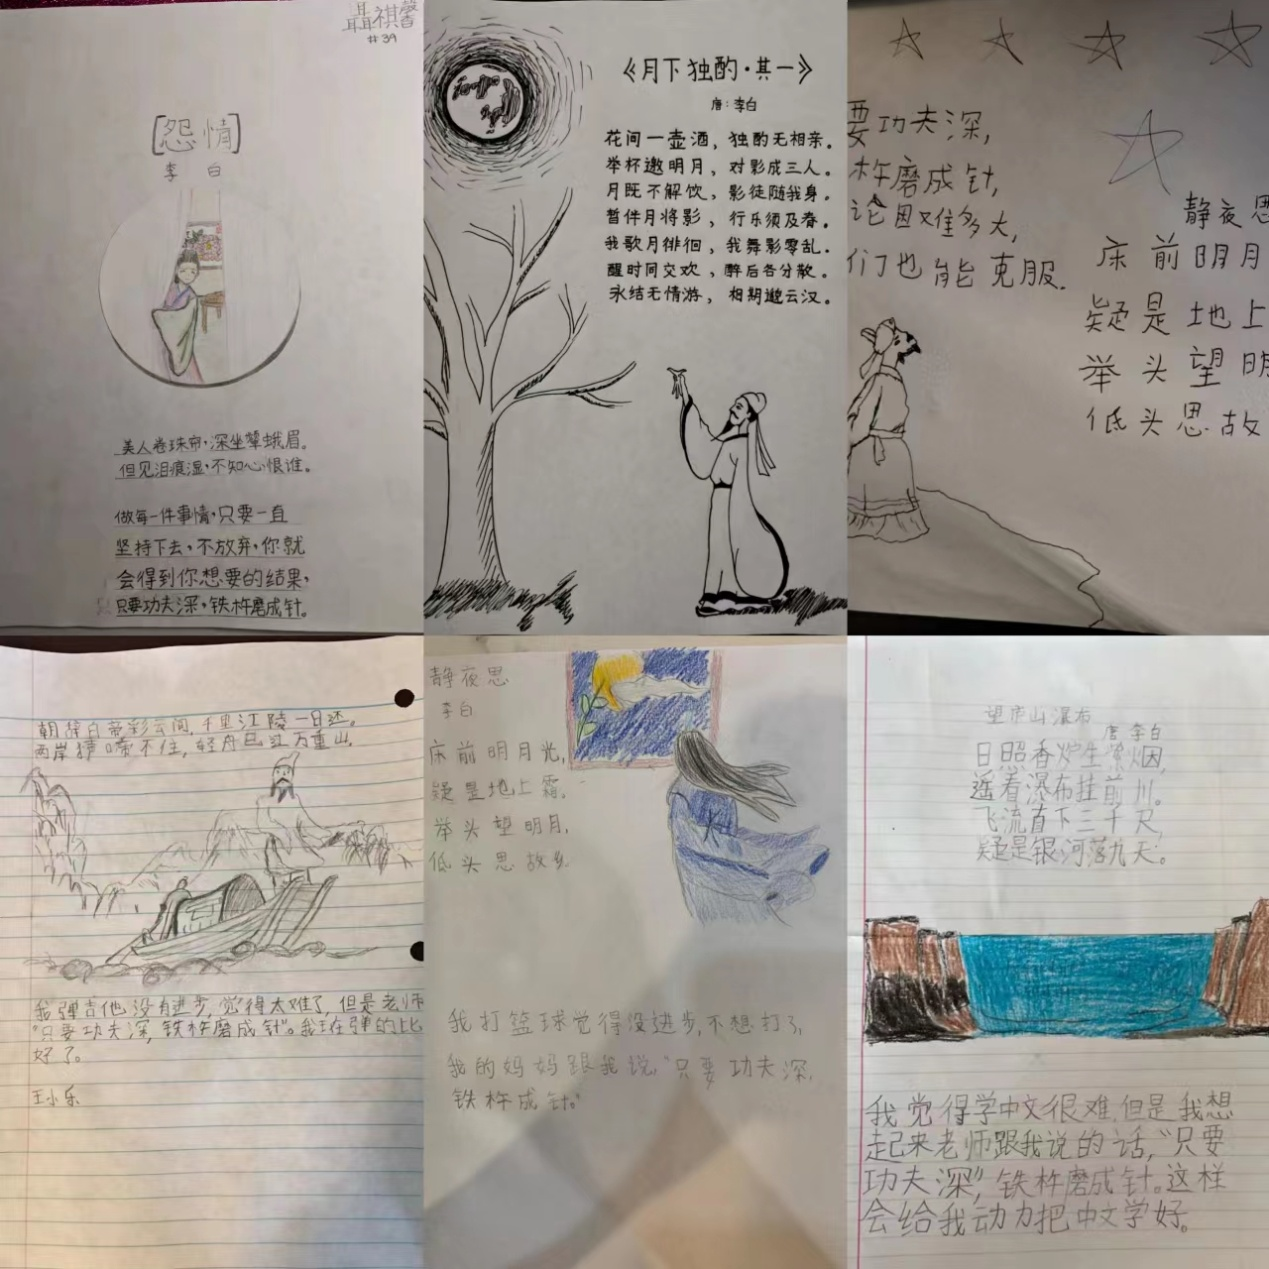 聶祺馨
#39
[怨情]
李白
美人卷珠帘,深坐颦蛾眉。
但见泪痕湿,不知心恨谁。
做每一件事情,只要一直
坚持下去,不放弃,你就
会得到你想要的结果,
只要功夫深,铁杵磨成针。
《月下独酌·其一》
唐:李白
花间一壶酒,独酌无相亲。
举杯邀明月,对影成三人。
月既不解饮,影徒随我身。
暂伴月将影,行乐须及春。
我歌月徘徊,我舞影零乱。
醒时同交欢,醉后各分散。
永结无情游,相期邈云汉。
要功夫深,
杵磨成针,
论困难多大,
们也能克服.
静夜思
床前明月
疑是地上
举头望明
低头思故
朝辞白帝彩云间,千里江陵一日还。
两岸猿啼不住,轻舟已过万重山。
我弹吉他没有进步,觉得太难了,但是老师
"只要功夫深,铁杵磨成针"。我现在弹的比
好了。
王小乐
静夜思
李白
床前明月光,
疑是地上霜.
举头望明月,
低头思故乡
我打篮球觉得没进步,不想打了,
我的妈妈跟我说,"只要功夫深,
铁杵成针。"
望庐山瀑布
唐 李白
日照香炉生紫烟,
遥看瀑布挂前川。
飞流直下三千尺,
疑是银河落九天。
我觉得学中文很难,但是我想
起来老师跟我说的话,"只要
功夫深",铁杵磨成针。这样
会给我动力把中文学好。